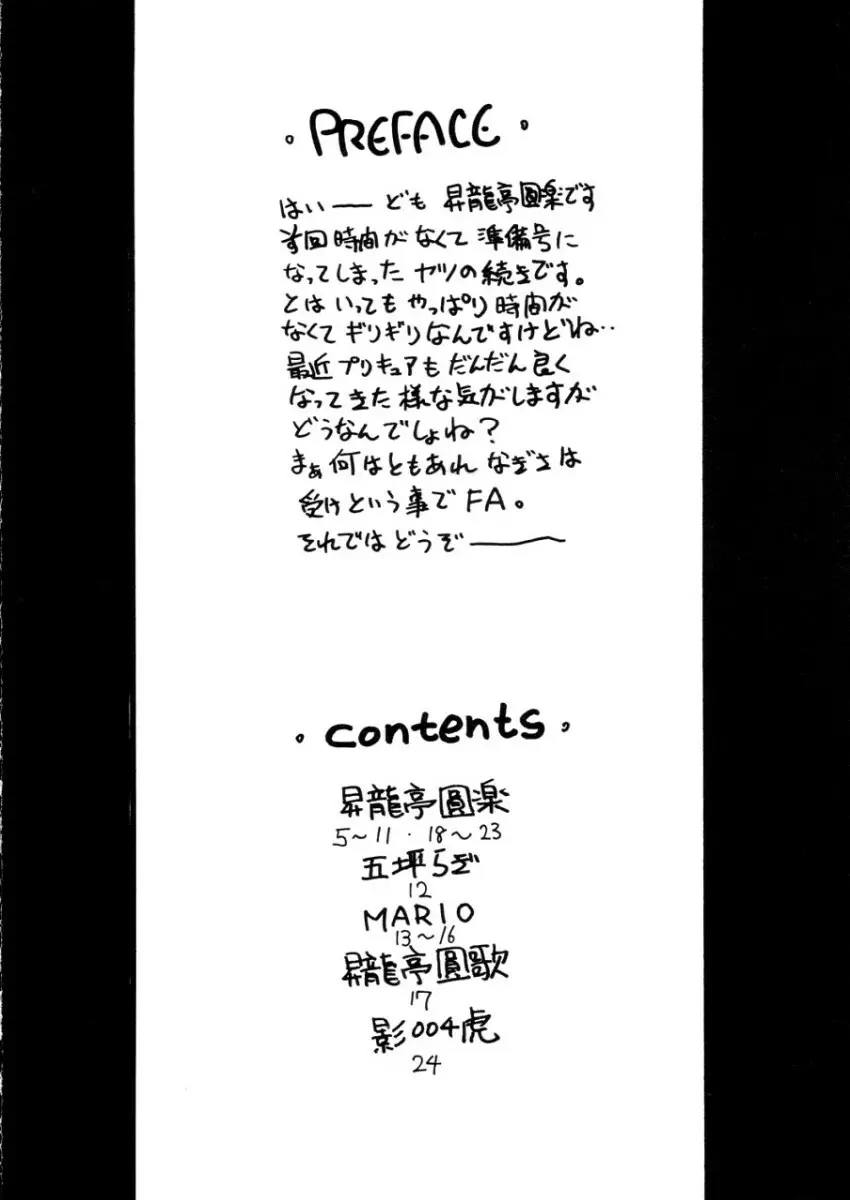 PREFACE
はい── ども 昇龍亭圓楽です
前回時間がなくて 準備号に
なってしまった ヤツの続きです。
とは いっても やっぱり 時間が
なくて ギリギリなんですけどね‥
最近 プリキュアも だんだん 良く
なってきた 様な気がしますが
どうなんでしょね?
まぁ 何はともあれ なぎさは
受けという事で FA。
それでは どうぞ───
contents
昇龍亭圓楽
5〜11・18〜23
五坪らぞ
12
MARIO
13〜16
昇龍亭圓歌
17
影004虎
24